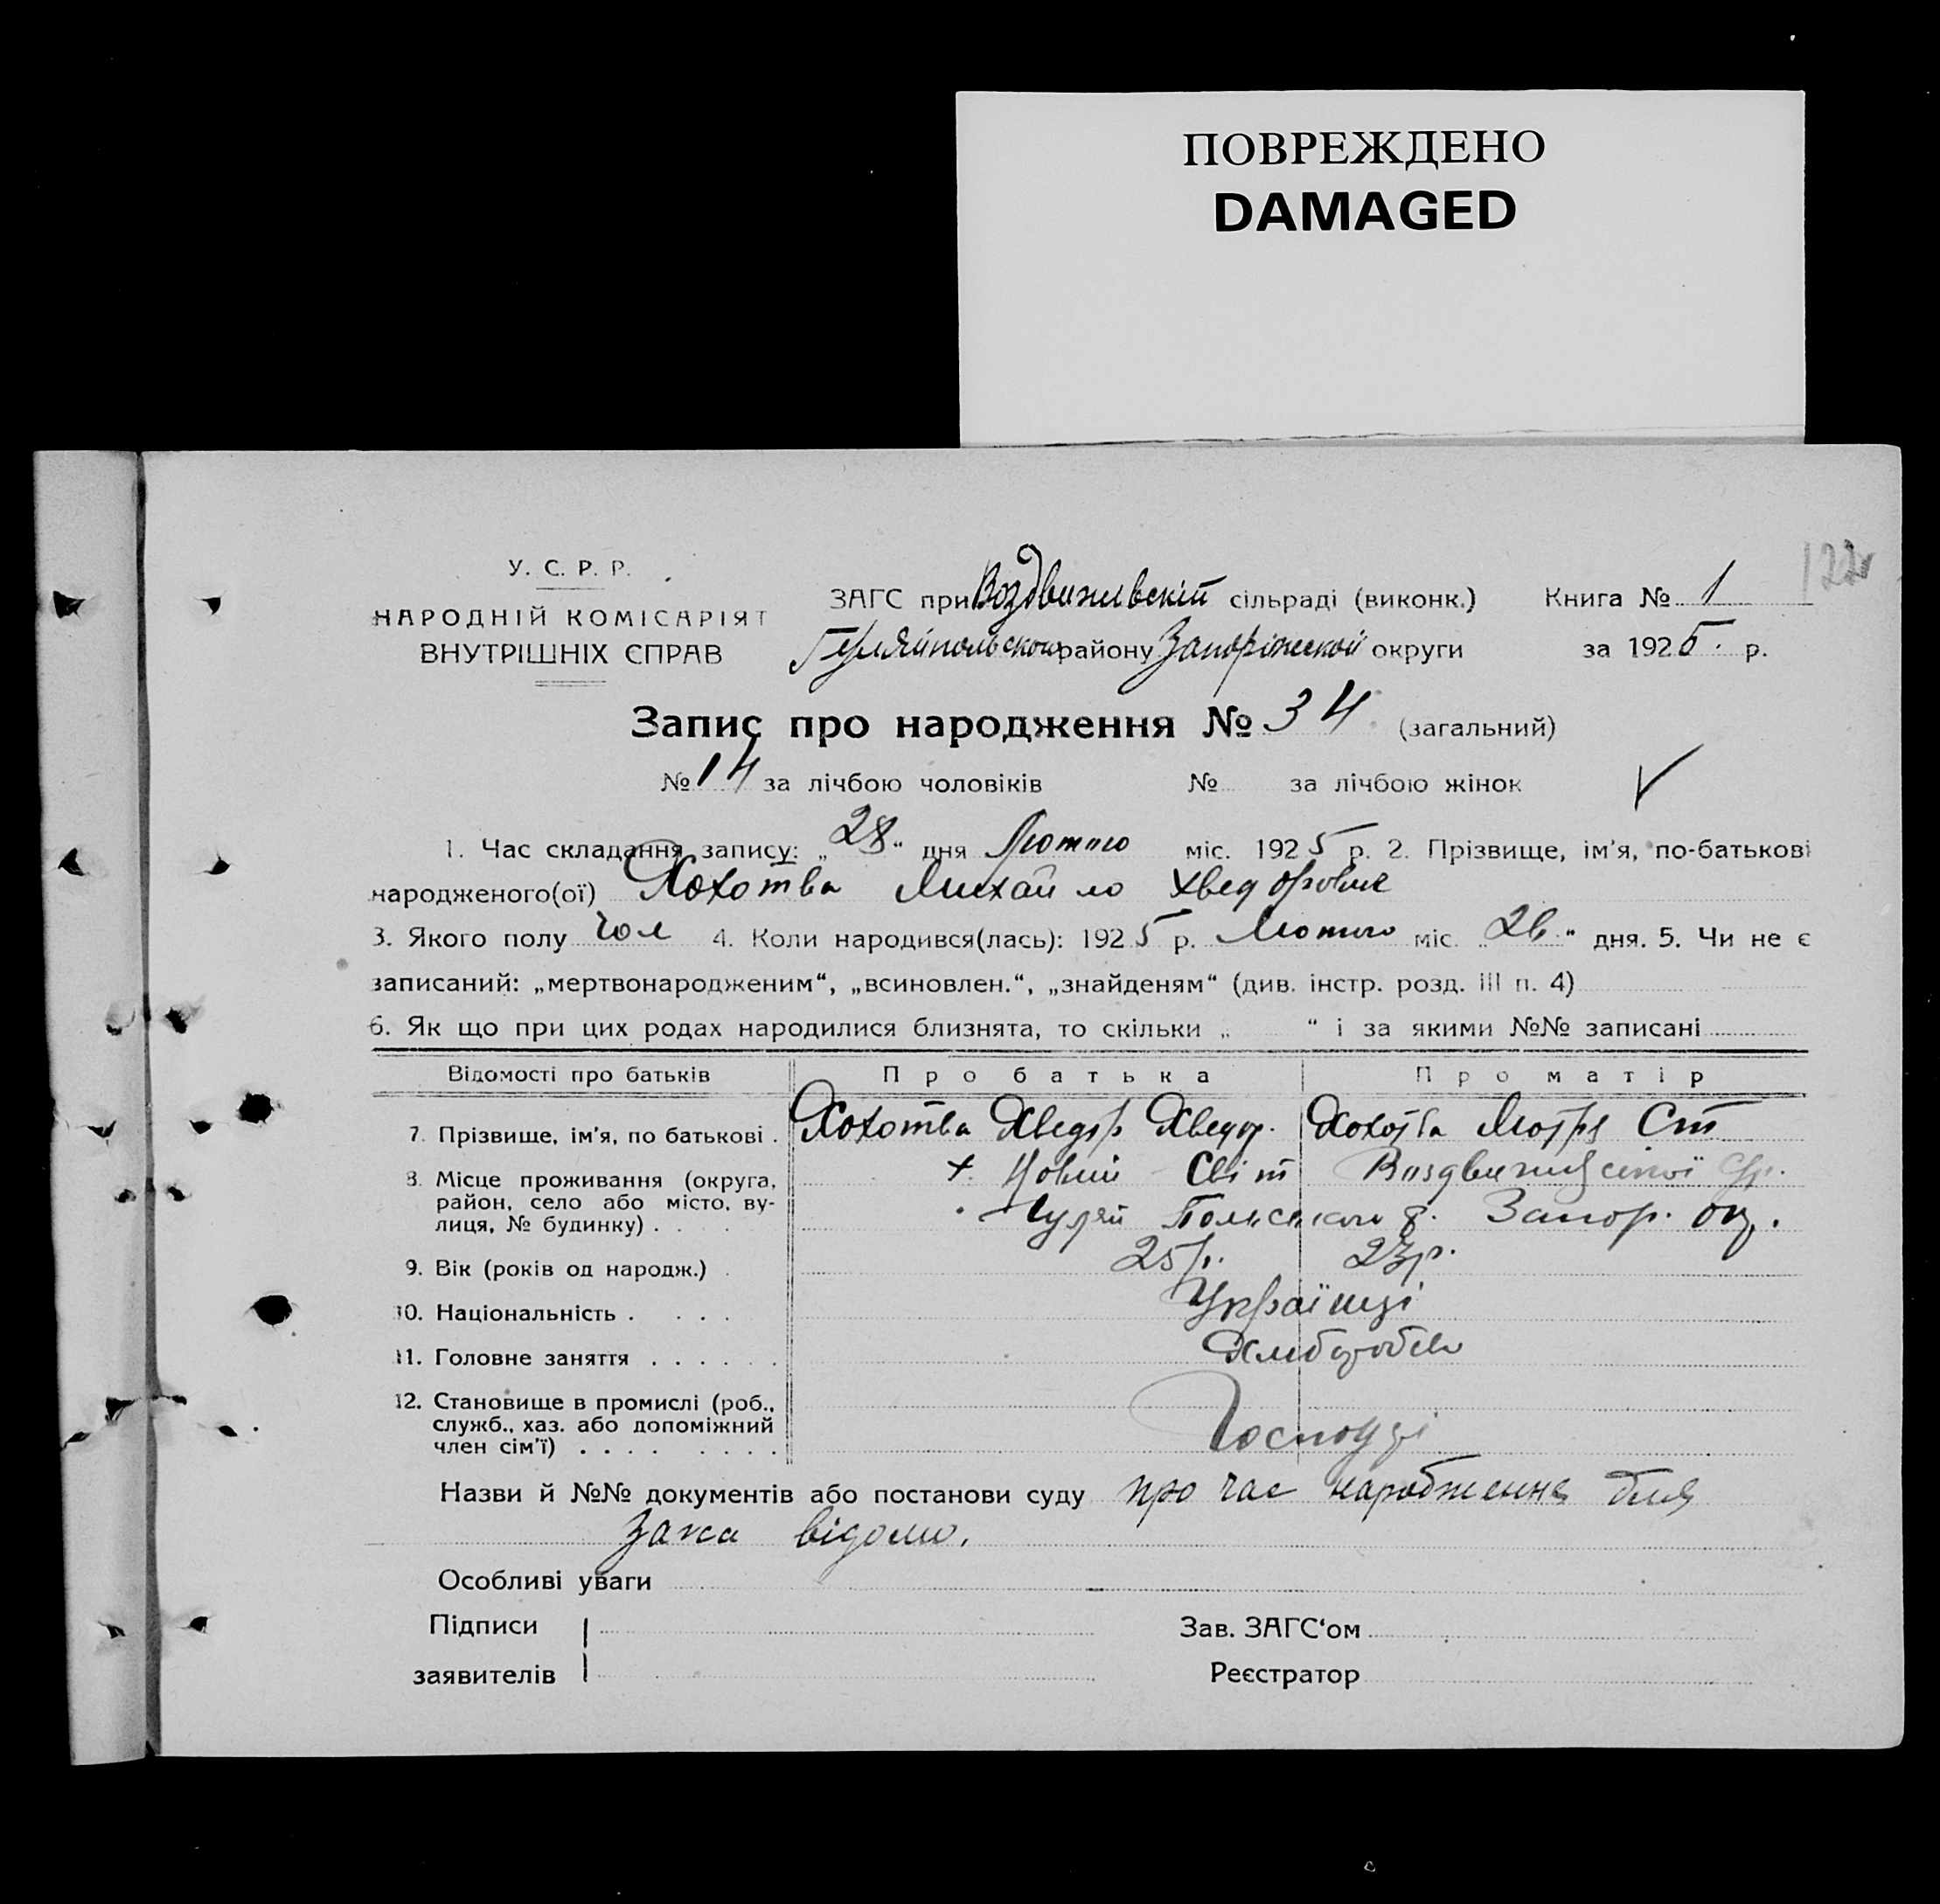 ПОВРЕЖДЕНО
DAMAGED
122
У. С. Р. Р.
НАРОДНІЙ КОМІСАРІЯТ
ВНУТРІШНІХ СПРАВ
ЗАГС при Воздвижевскій сільраді (виконк.)
Гуляйпольського району Запоріжської округи
Книга № 1
за 1925 р.
Запис про народження № 34 (загальний)
№ 14 за лічбою чоловіків № за лічбою жінок
1. Час складання запису: „28“ дня Лютого міс. 1925 р. 2. Прізвище, ім'я, по-батькові
народженого(ої) Хохотва Михайло Хведорович
3. Якого полу чол 4. Коли народився(лась): 1925 р. Лютого міс. „26“ дня. 5. Чи не є
записаний: „мертвонародженим“, „всиновлен.“, „знайденям“ (див. інстр. розд. III п. 4)
6. Як що при цих родах народилися близнята, то скільки „ “ і за якими №№ записані
Відомості про батьків Про батька Про матір
7. Прізвище, ім'я, по батькові . Хохотва Хведір Хведор. Хохотва Мотря Ст
8. Місце проживання (округа, район, село або місто, вулиця, № будинку) . х. Новий Світ Воздвижевської
Гуляй Польського р. Запор. ок.
9. Вік (років од народж.) . 25 р. 23 р.
10. Національність . . . . Українці
11. Головне заняття . . . . . . Хлібороби
12. Становище в промислі (роб.,
служб., хаз. або допоміжний
член сім'ї) . . . . . . . . Господрі
Назви й №№ документів або постанови суду про час народження для
Загса відомо.
Особливі уваги
Підписи
заявителів
Зав. ЗАГС‘ом
Реєстратор